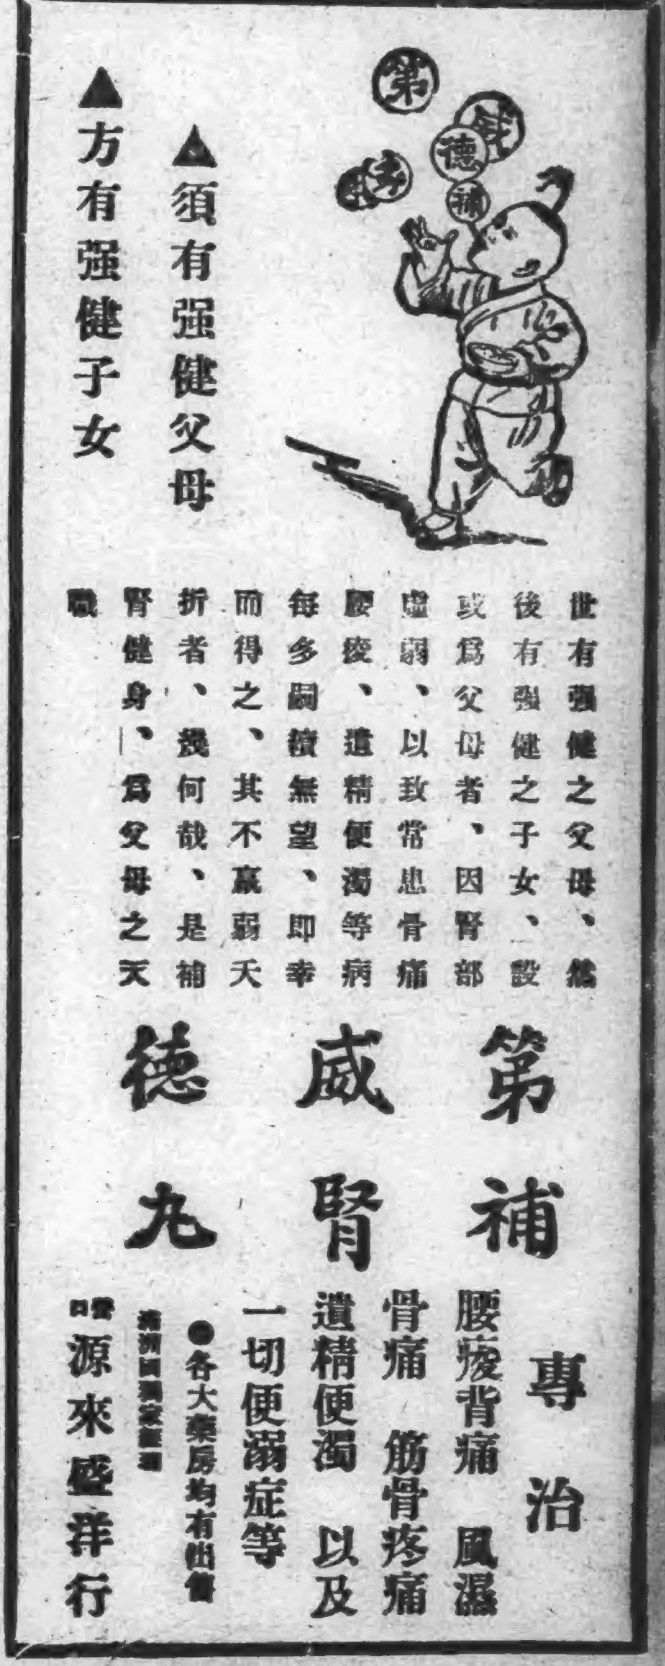 第
德
補
▲須有强健父母
▲方有强健子女
世有强健之父母、然
後有强健之子女、設
或爲父母者、因腎部
虛弱、以致常患骨痛
腰痠、遺精便濁等病
每多嗣續無望、即幸
而得之、其不羸弱夭
折者、幾何哉、是補
腎健身、爲父母之天
職
第威德
補腎丸
專治
腰痠背痛 風濕
骨痛 筋骨疼痛
遺精便濁 以及
一切便溺症等
●各大藥房均有出售
滿洲國獨家經理
營口 源來盛洋行